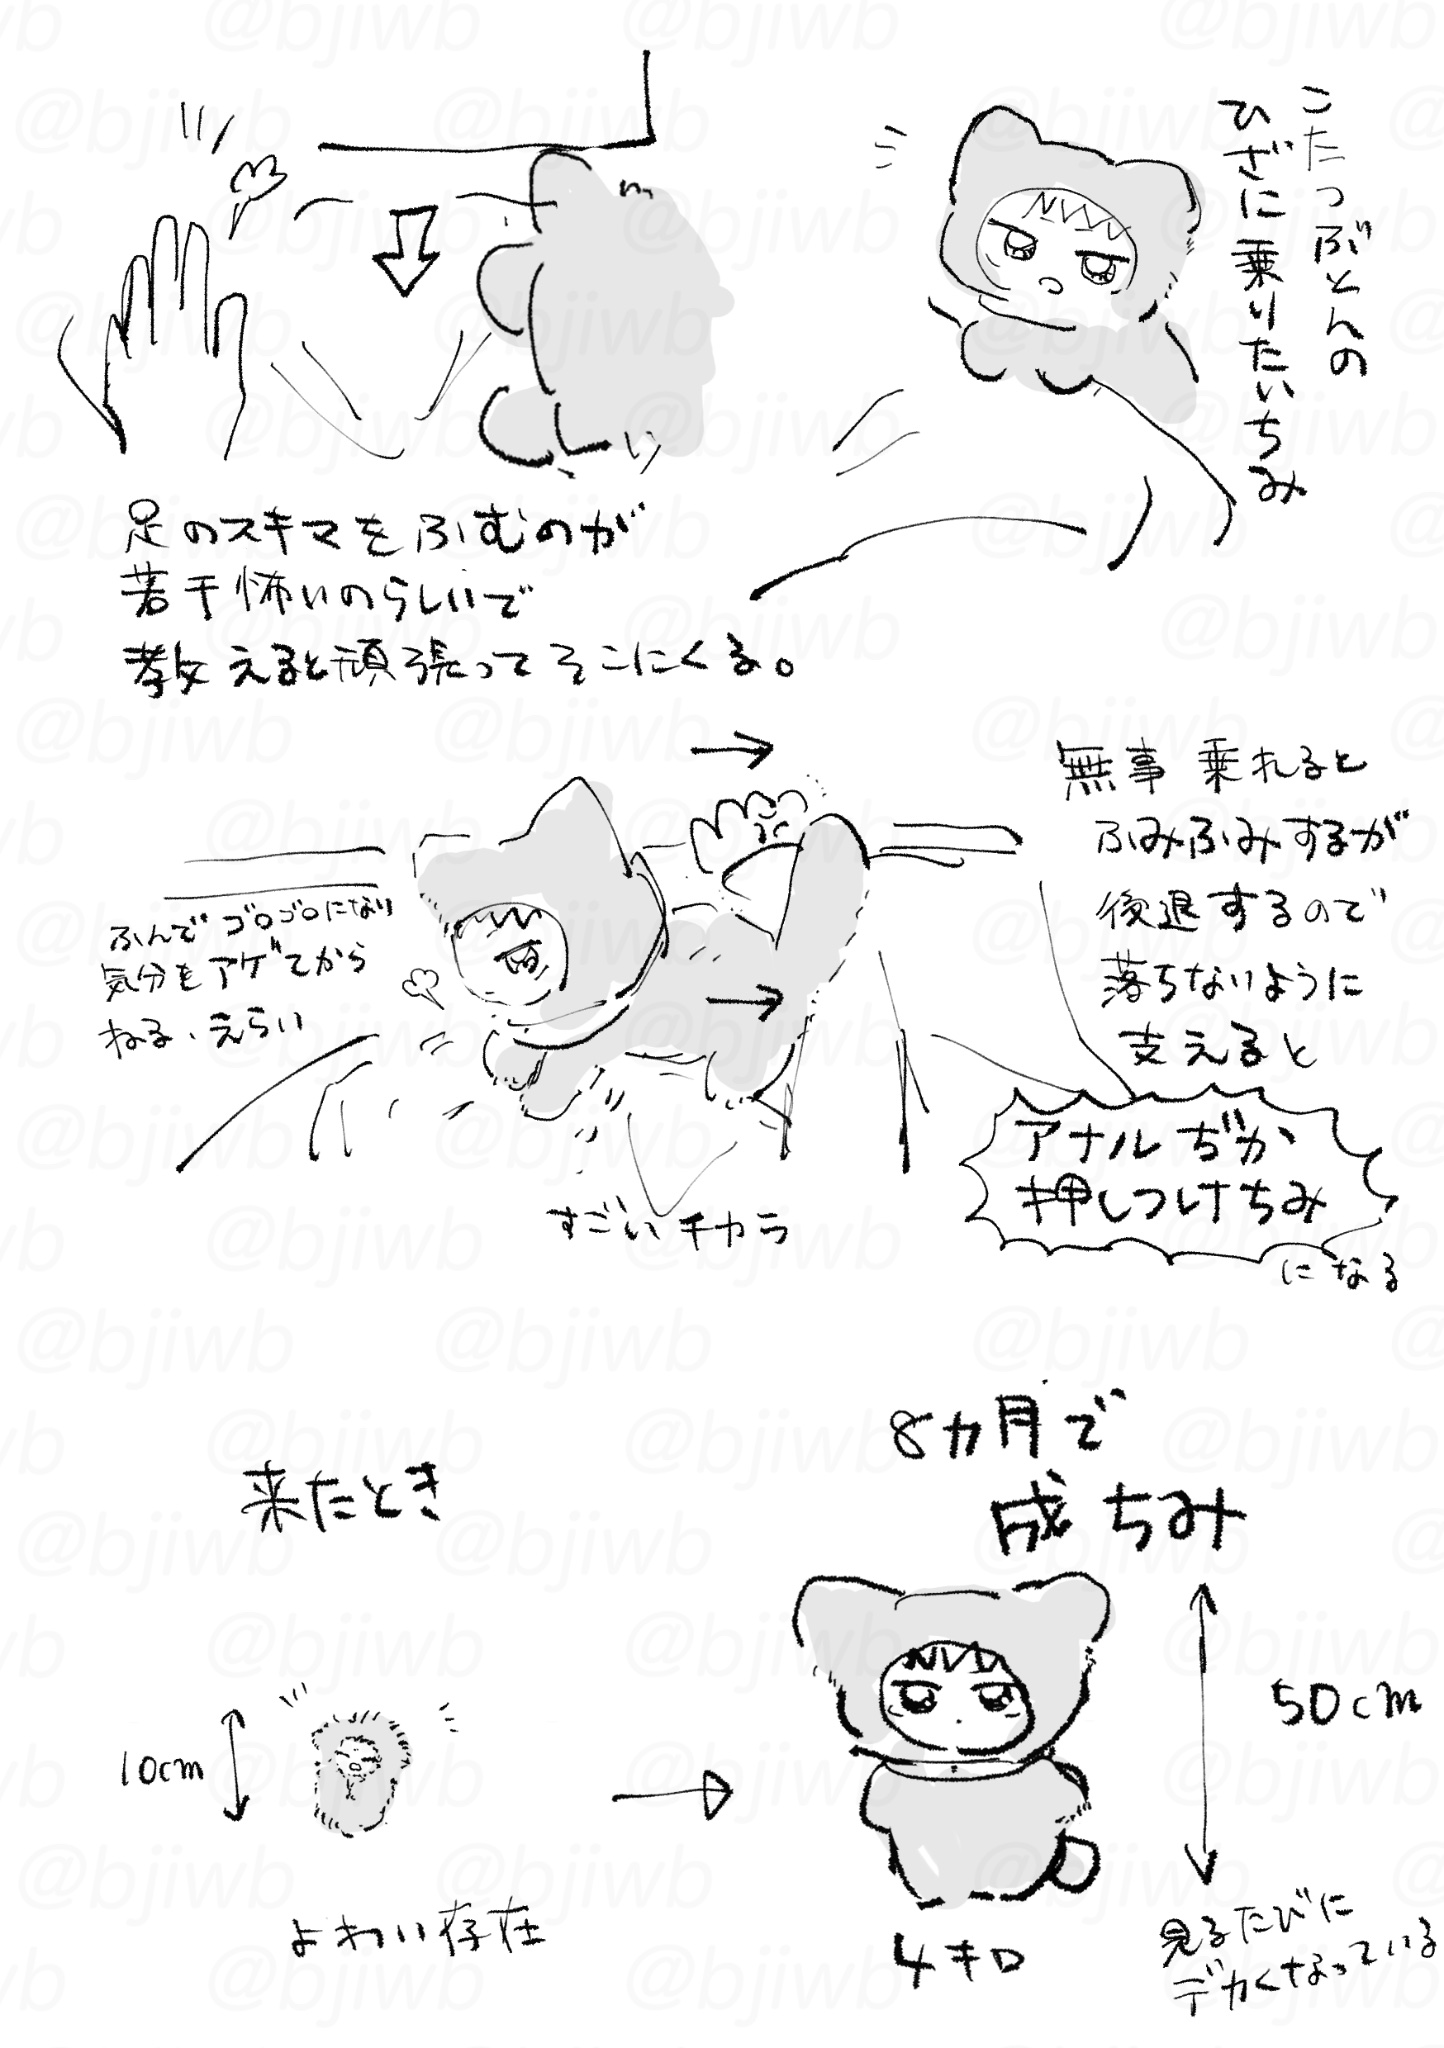 こたつぶとんの
ひざに乗りたいちみ
足のスキマをふむのが
若干怖いのらしいで
教えると頑張ってそこにくる。
無事乗れると
ふみふみするが
後退するので
落ちないように
支えると
アナルぢか
押しつけちみ
になる
ふんでゴロゴロになり
気分をアゲてから
ねる、えらい
すごいチカラ
来たとき
10cm
よわい存在
8カ月で
成ちみ
50cm
4キロ
見るたびに
デカくなっている
@bjiwb